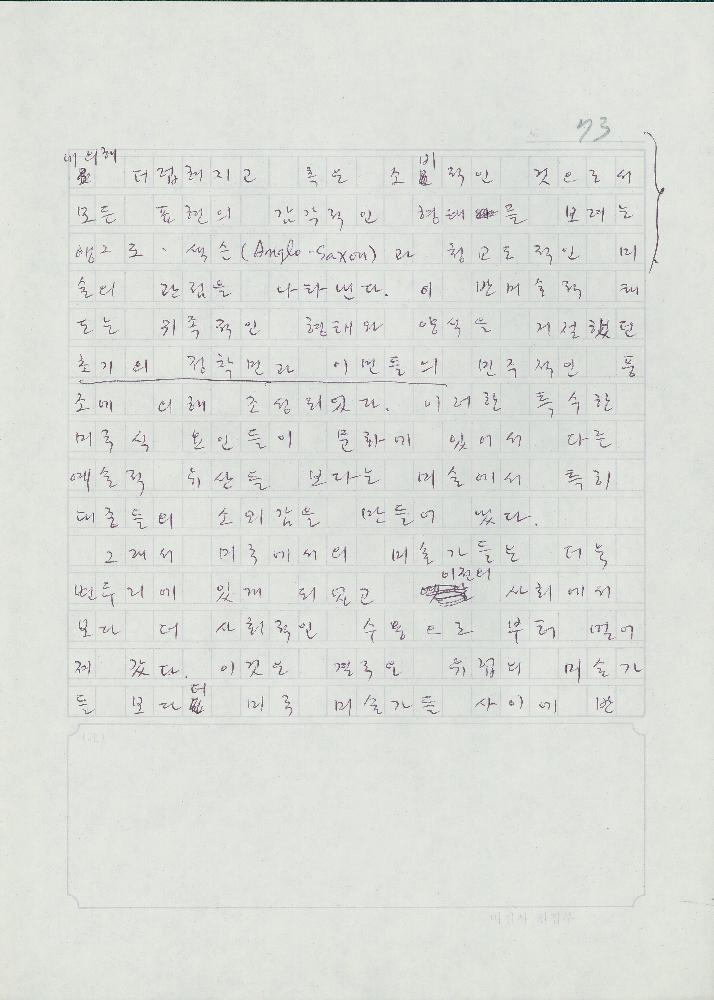 73
에 의해
더럽혀지고 혹은 소비적인 것으로서
모든 표현의 감각적인 형태들을 보려는
앵그로·색슨(Anglo-Saxon)과 청교도적인 미
술의 관점을 나타낸다. 이 반미술적 태
도는 귀족적인 형태와 양식을 거절했던
초기의 정착민과 이민들의 민주적인 풍
조에 의해 조성되었다. 이러한 특수한
미국식 요인들이 문화에 있어서 다른
예술적 유산들 보다는 미술에서 특히
대중들의 소외감을 만들어 냈다.
그래서 미국에서의 미술가들은 더욱
변두리에 있게 되었고 이전의 사회에서
보다 더 사회적인 수용으로 부터 멀어
져 갔다. 이것은 결국은 유럽의 미술가
들 보다 더 미국 미술가들 사이에 반